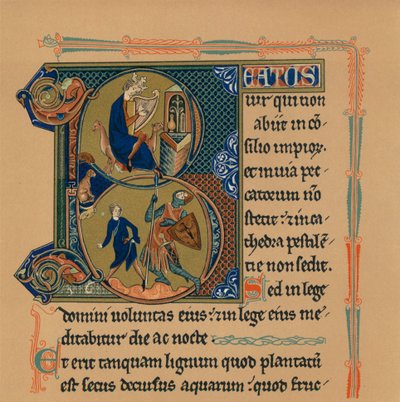 BEATUS
uir qui non
abiit in cō
silio impioꝝ.
et in uia pec
catorum nō
stetit : ⁊ in ca
thedra pestilē
tie non sedit.
Sed in lege
domini uoluntas eius : ⁊ in lege eius me
ditabitur die ac nocte
Et erit tanquam lignum quod plantatū
est secus decursus aquarum : quod fruc-